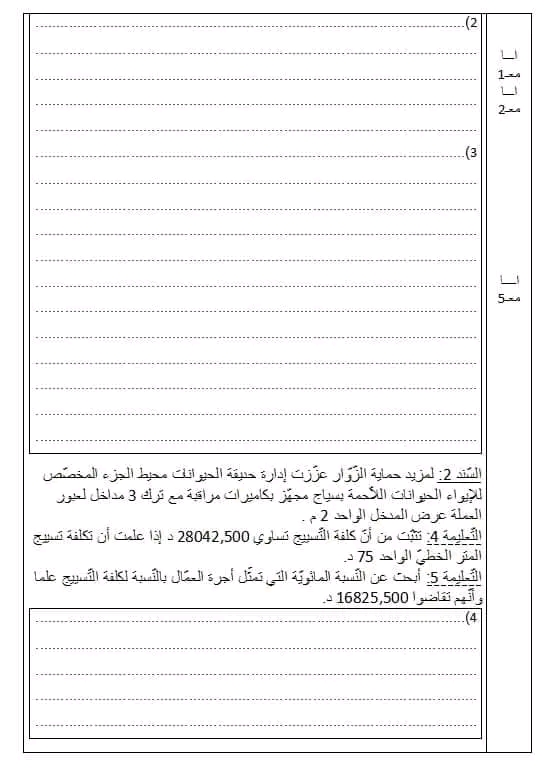 2)
اــا
معـ1
اــا
معـ2
3)
اــا
معـ5
السّند 2: لمزيد حماية الزّوّار عزّزت إدارة حديقة الحيوانات محيط الجزء المخصّص
للإيواء الحيوانات اللاّحمة بسياج مجهّز بكاميرات مراقبة مع ترك 3 مداخل لعبور
العملة عرض المدخل الواحد 2 م .
التّعليمة 4: تثبّت من أنّ كلفة التّسييج تساوي 28042,500 د إذا علمت أن تكلفة تسييج
المتر الخطيّ الواحد 75 د.
التّعليمة 5: أبحث عن النّسبة المائويّة التي تمثّل أجرة العمّال بالنّسبة لكلفة التّسييج علما
وأنّهم تقاضوا 16825,500 د.
4)